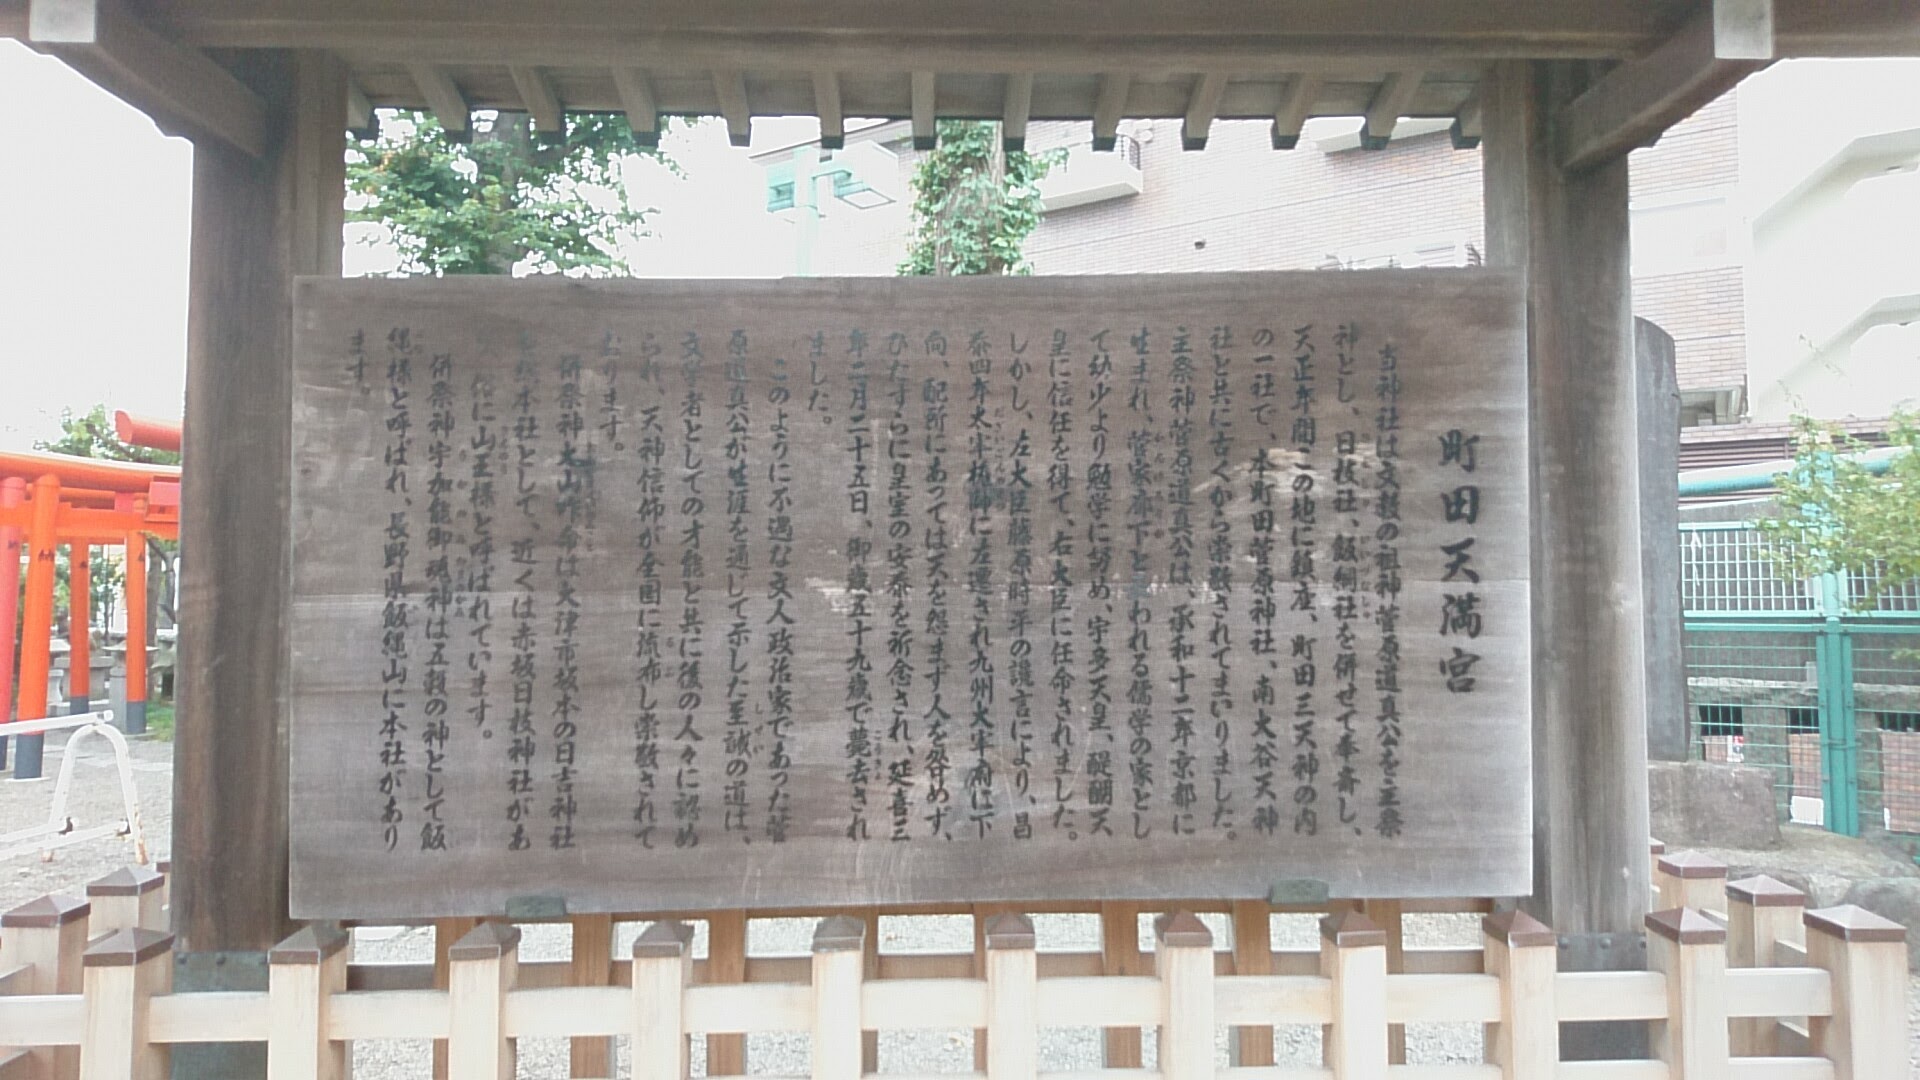 町田天満宮
当神社は文教の祖神菅原道真公を主祭
神とし、日枝社、飯綱社を併せて奉斎し、
天正年間この地に鎮座、町田三天神の内
の一社で、本町田菅原神社、南大谷天神
社と共に古くから崇敬されてまいりました。
主祭神菅原道真公は、承和十二年京都に
生まれ、菅家廊下と云われる儒学の家とし
て幼少より勉学に努め、宇多天皇、醍醐天
皇に信任を得て、右大臣に任命されました。
しかし、左大臣藤原時平の讒言により、昌
泰四年太宰権帥に左遷され九州大宰府に下
向、配所にあっては天を怨まず人を咎めず、
ひたすらに皇室の安泰を祈念され、延喜三
年二月二十五日、御歳五十九歳で薨去され
ました。
このように不遇な文人政治家であった菅
原道真公が生涯を通じて示した至誠の道は、
文学者としての才能と共に後の人々に認め
られ、天神信仰が全国に流布し崇敬されて
おります。
併祭神大山咋命は大津市坂本の日吉神社
を総本社として、近くは赤坂日枝神社があ
俗に山王様と呼ばれています。
併祭神宇加能御魂神は五穀の神として飯
縄様と呼ばれ、長野県飯縄山に本社があり
ます。